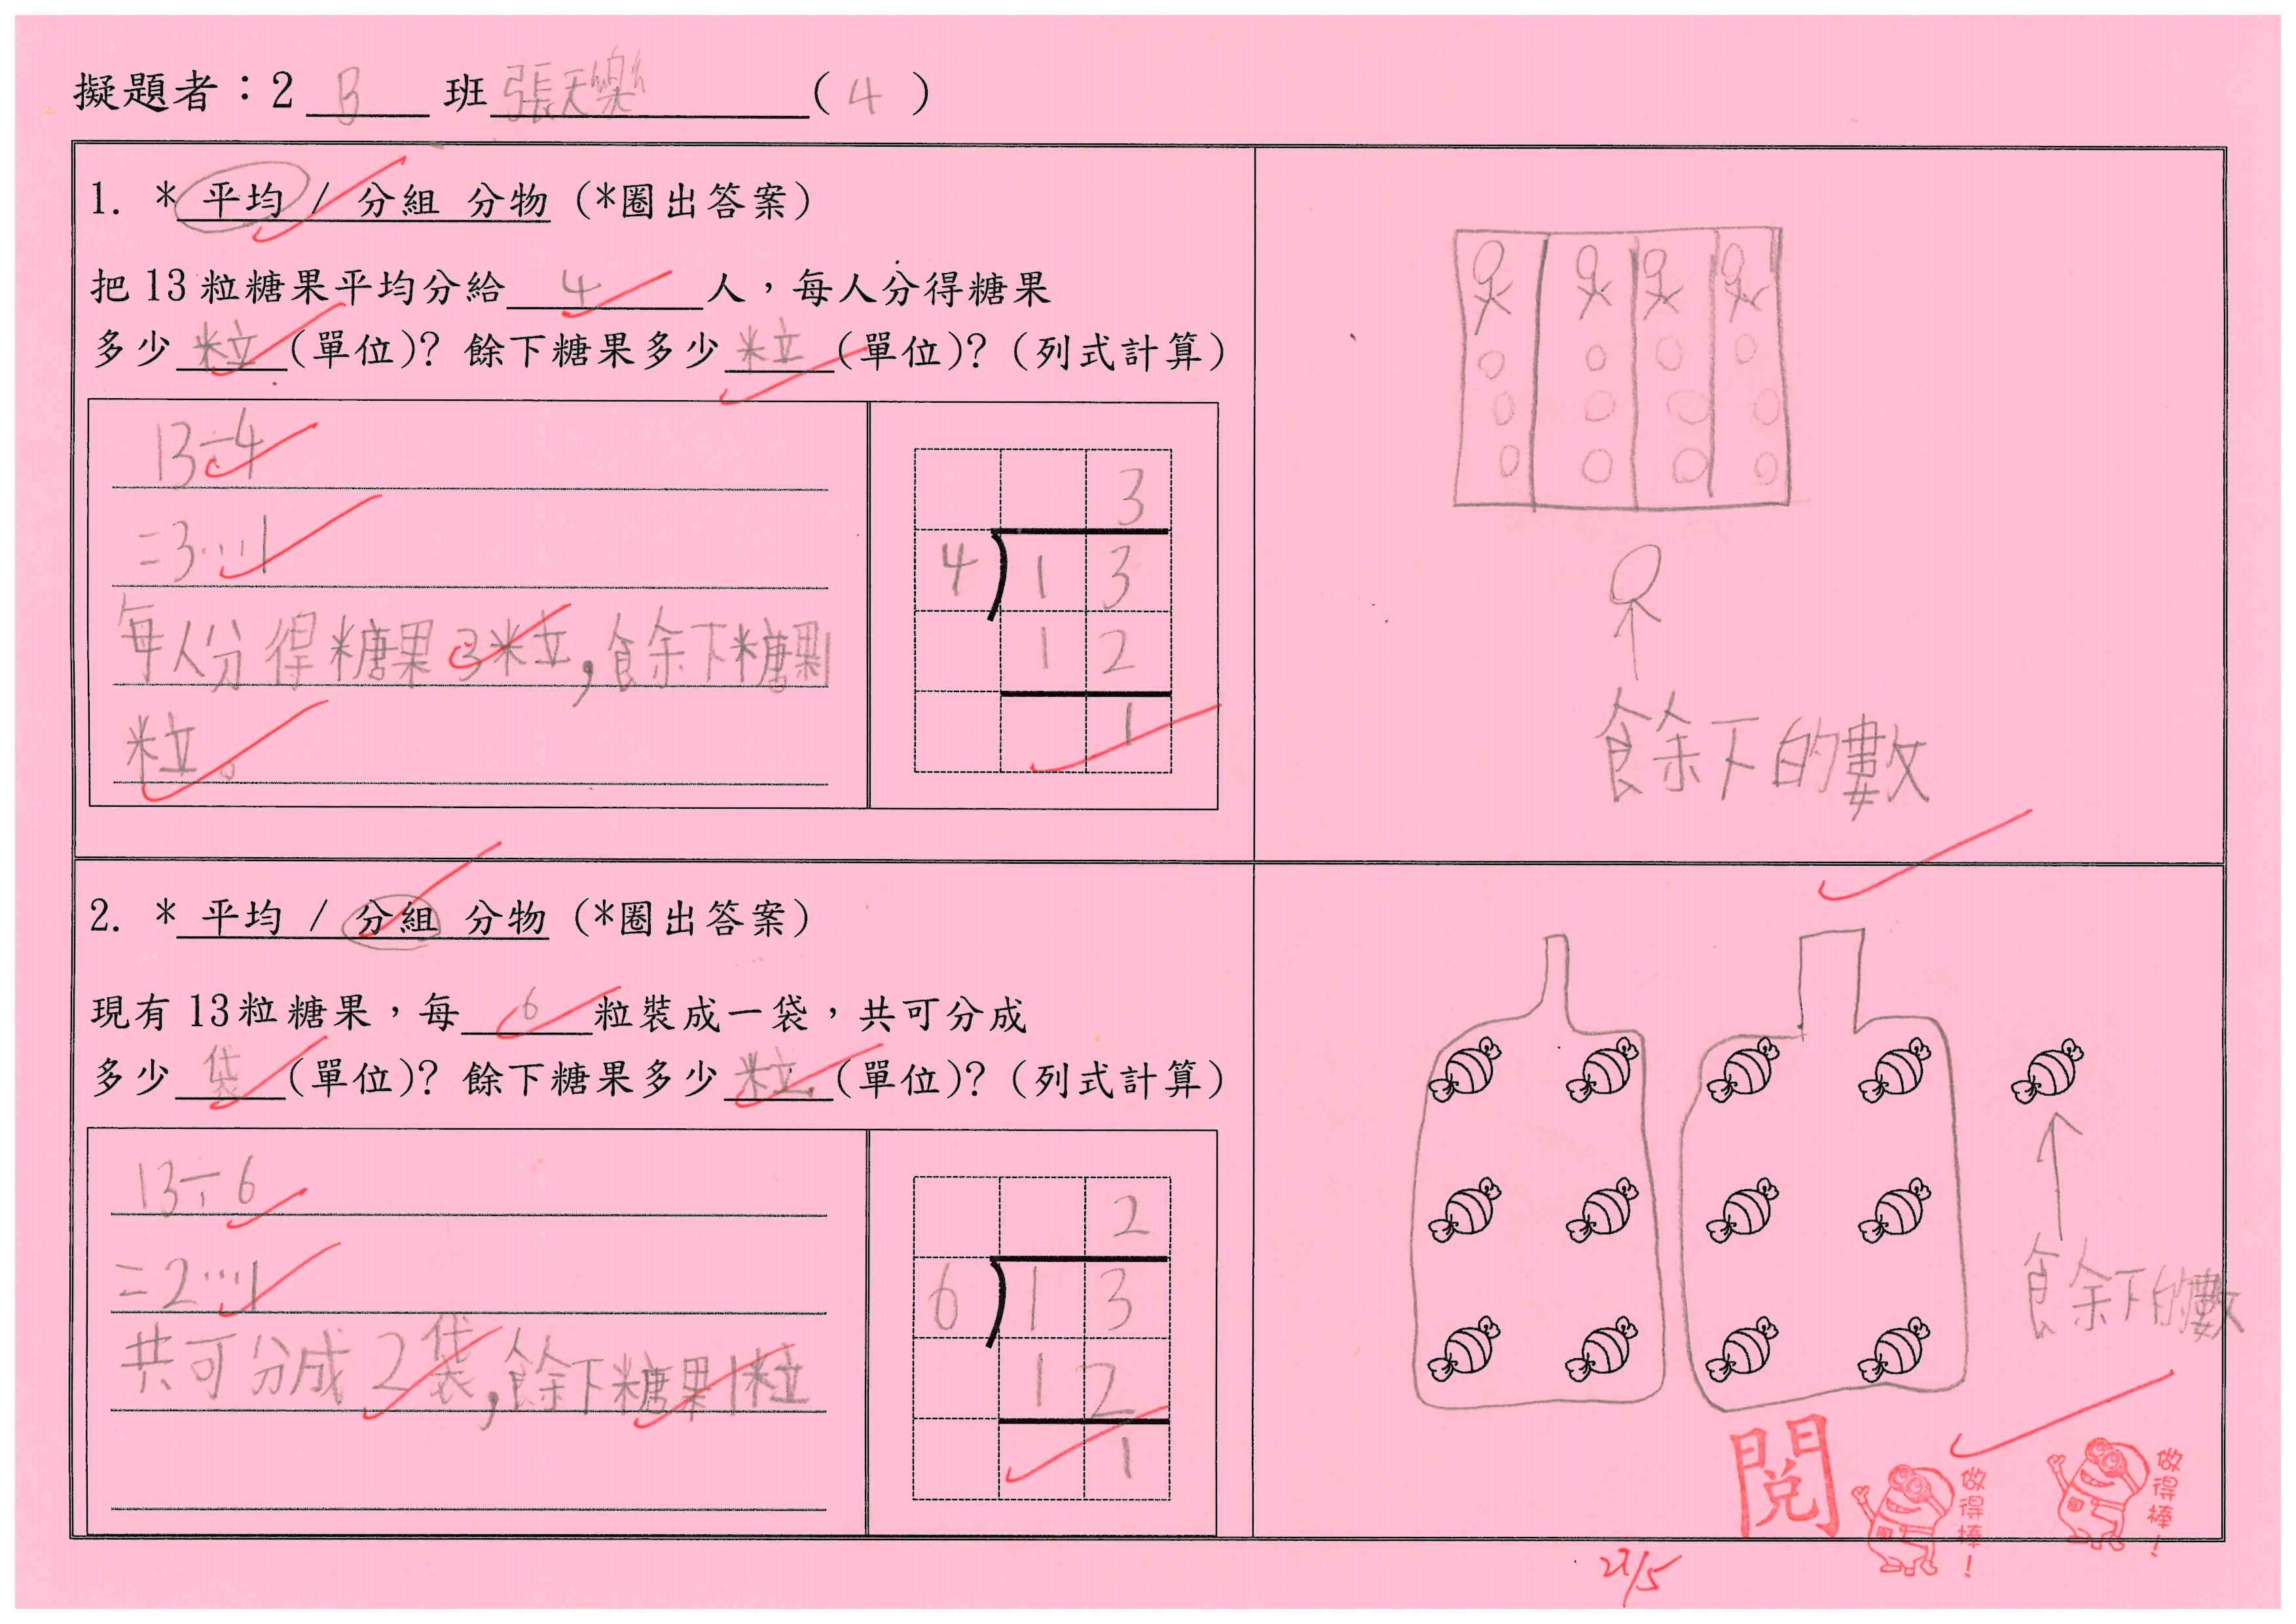 擬題者：2 B 班 張天樂 ( 4 )
1. * 平均 / 分組 分物 (*圈出答案)
把 13 粒糖果平均分給 4 人，每人分得糖果
多少 粒 (單位)? 餘下糖果多少 粒 (單位)? (列式計算)
13÷4
=3…1
每人分得糖果3粒,餘下糖果1
粒。
3
4 ) 1 3
1 2
1
餘下的數
2. * 平均 / 分組 分物 (*圈出答案)
現有 13粒糖果，每 6 粒裝成一袋，共可分成
多少 袋 (單位)? 餘下糖果多少 粒 (單位)? (列式計算)
13÷6
=2…1
共可分成2袋,餘下糖果1粒
2
6 ) 1 3
1 2
1
餘下的數
閱
做得棒！
做得棒！